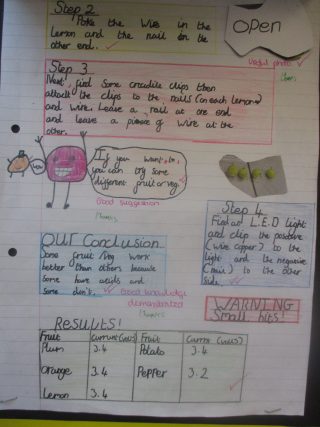 Step 2
Poke the Wire in the
Lemon and the nail on the
other end.
OPEN
Useful photo
Step 3
Next, find Some crocodile clips then
attach the clips to the nails (on each Lemon)
and wire. Leave a nail at one end
and leave a pieece of wire at the
other.
If you want to,
you can try some
different fruit or veg.
Good suggestion
Step 4
Find an L.E.D Light
and clip the positive
(wire copper) to the
light and the negative
(nail) to the other
side.
OUR Conclusion
Some fruit/Veg work
better than others because
some have acids and
some don't.
Good knowledge
demonstrated
WARNING
Small bits!
RESULTS!
Fruit Current (volts) Fruit Current (volts)
Plum 3.4 Potato 3.4
Orange 3.4 Pepper 3.2
Lemon 3.4